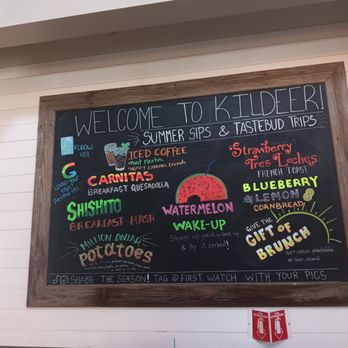 WELCOME TO KILDEER!
SUMMER SIPS & TASTEBUD TRIPS
FOLLOW
US!
ICED COFFEE
G
CARNITAS
BREAKFAST QUESADILLA
SHISHITO
BREAKFAST HASH
MILLION DOLLAR
POTATOES
WATERMELON
WAKE-UP
Strawberry
Tres Leches
FRENCH TOAST
BLUEBERRY
& LEMON
CORNBREAD
GIVE THE
GIFT OF
BRUNCH
SHARE THE SEASON! TAG @FIRST WATCH WITH YOUR PICS